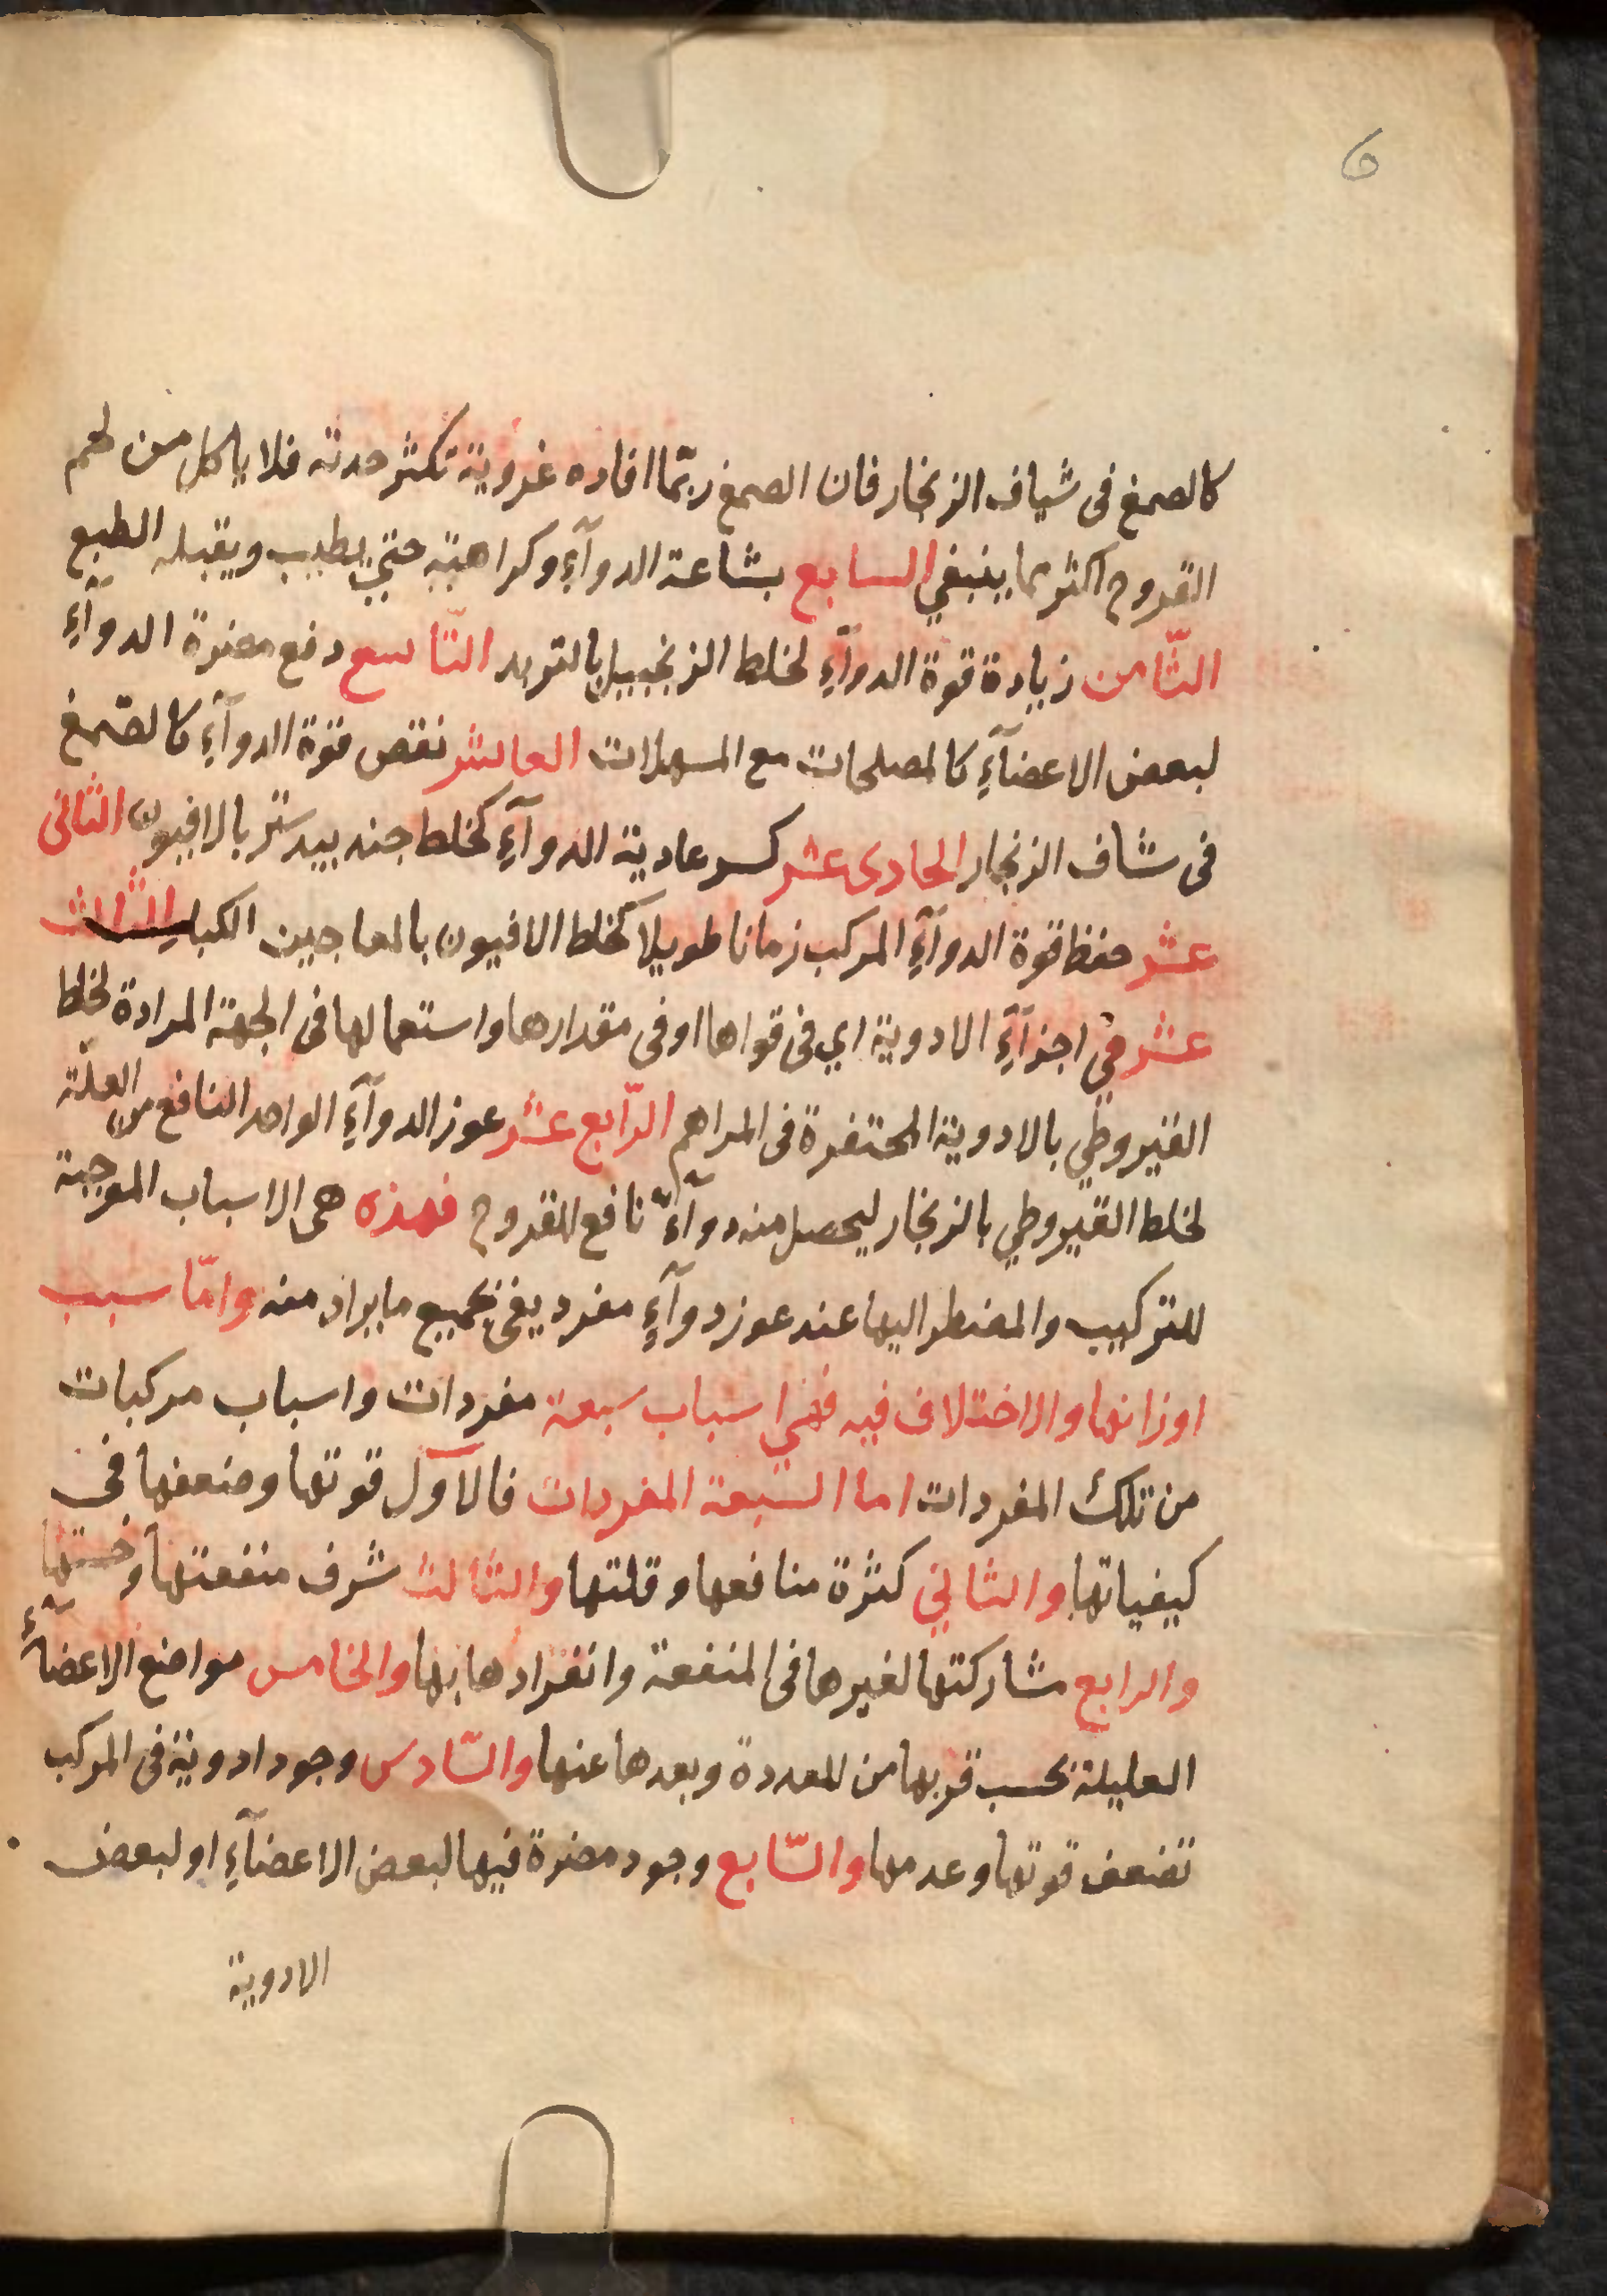 6
كالصمغ فى شياف الزنجار فان الصمغ ربّما افاده غروية تكثر حدته فلا ياكل من لحم
القروح اكثر مما ينبغي السابع بشاعة الدوآءِ وكراهته حتي يطيب ويقبله الطبع
الثّامن زيادة قوة الدوآءِ لخلط الزنجبيل بالتربد التّاسع دفع مضرة الدوآءِ
لبعض الاعضآءِ كالمصلحات مع المسهلات العاشر نقص قوة الدوآءِ كالصّمغ
فى شاف الزنجار الحادى عشر كسر عادية الدوآءِ كخلط جند بيدستر بالافيون الثانى
عشر حفظ قوة الدوآءِ المركب زمانا طويلا كخلط الافيون بالمعاجين الكبار الثالث
عشر في اجزآءِ الادوية اي فى قواها او فى مقدارها واستعمالها فى الجهة المرادة لخلط
القيروطي بالادوية المحتفرة فى المراهم الرّابع عشر عوز الدوآءِ الواحد النافع من العلّة
لخلط القيروطي بالزنجار ليحصل منه دوآءٌ نافع للقروح فهذه هى الاسباب الموجبة
للتركيب والمضطر اليها عند عوز دوآءٍ مفرد يفى بجميع ما يراد منه وامّا سبب
اوزانها والاختلاف فيه فهي اسباب سبعة مفردات واسباب مركبات
من تلك المفردات اما السّبعة المفردات فالآول قوتها وضعفها فى
كيفياتها والثاني كثرة منافعها وقلتها والثالث شرف منفعتها وخستها
والرابع مشاركتها لغيرها فى المنفعة وانفرادها بها والخامس مواضع الاعضآءِ
العليلة بحسب قربها من المعددة وبعدها عنها والسّادس وجود ادوية فى المركب
تضعف قوتها وعدمها والسّابع وجود مضرة فيها لبعض الاعضآءِ او لبعض
الادوية